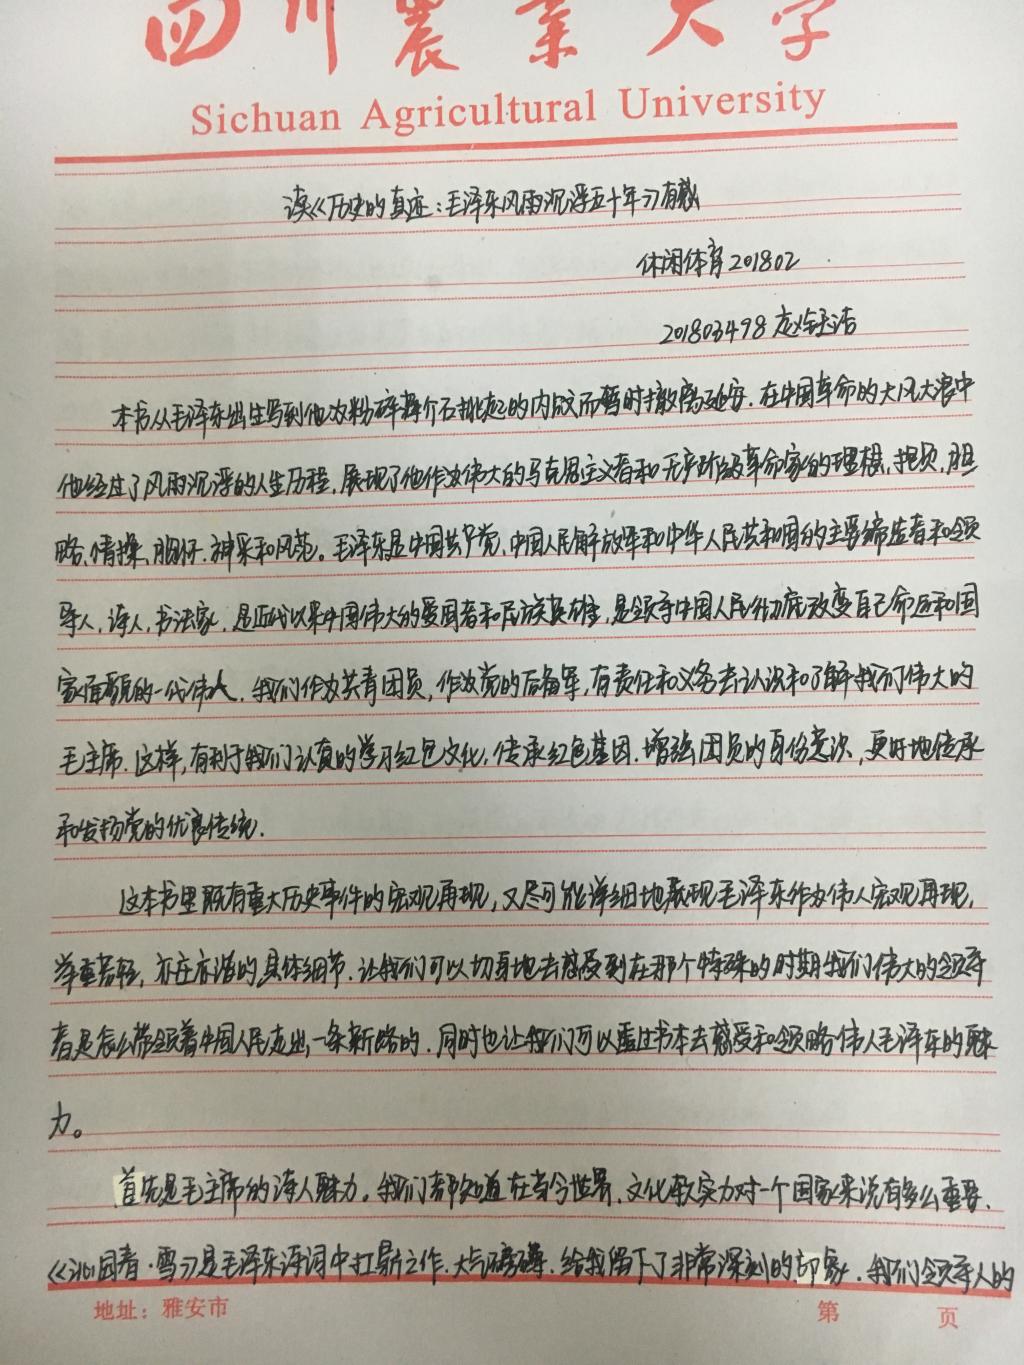 四川農業大学
Sichuan Agricultural University
读《历史的真迹:毛泽东风雨沉浮五十年》有感
休闲体育201802
201803498 赵钰洁
本书从毛泽东出生写到他为粉碎蒋介石挑起的内战而暂时撤离延安.在中国革命的大风大浪中
他经过了风雨沉浮的人生历程,展现了他作为伟大的马克思主义者和无产阶级革命家的理想,抱负,胆
略、情操、胸怀.神采和风范。毛泽东是中国共产党,中国人民解放军和中华人民共和国的主要缔造者和领
导人,诗人,书法家,是近代以来中国伟大的爱国者和民族英雄,是领导中国人民彻底改变自己命运和国
家面貌的一代伟人.我们作为共青团员,作为党的后备军,有责任和义务去认识和了解我们伟大的
毛主席.这样,有利于我们认真的学习红色文化,传承红色基因.增强团员的身份意识、更好地传承
和发扬党的优良传统.
这本书里既有重大历史事件的宏观再现,又尽可能详细地展现毛泽东作为伟人宏观再现,
举重若轻,亦庄亦谐的具体细节.让我们可以切身地去感受到在那个特殊的时期我们伟大的领导
者是怎么带领着中国人民走出一条新路的.同时也让我们可以透过书本去感受和领略伟人毛泽东的魅
力。
首先是毛主席的诗人魅力。我们都知道在当今世界.文化软实力对一个国家来说有多么重要、
《沁园春·雪》是毛泽东诗词中扛鼎之作.大气磅礴.给我留下了非常深刻的印象.我们领导人的
地址:雅安市
第 页